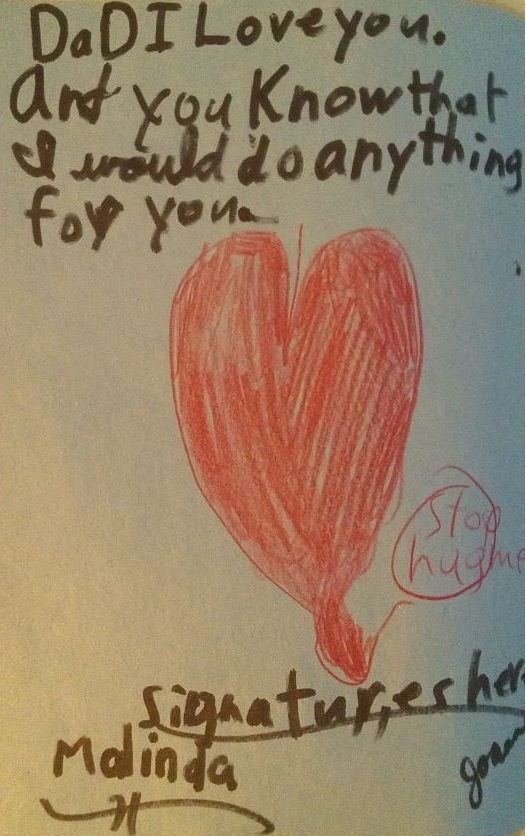 DaD I Love you.
and you Know that
I would do anything
for you.
Stop
hug me
Signatures here
Malinda